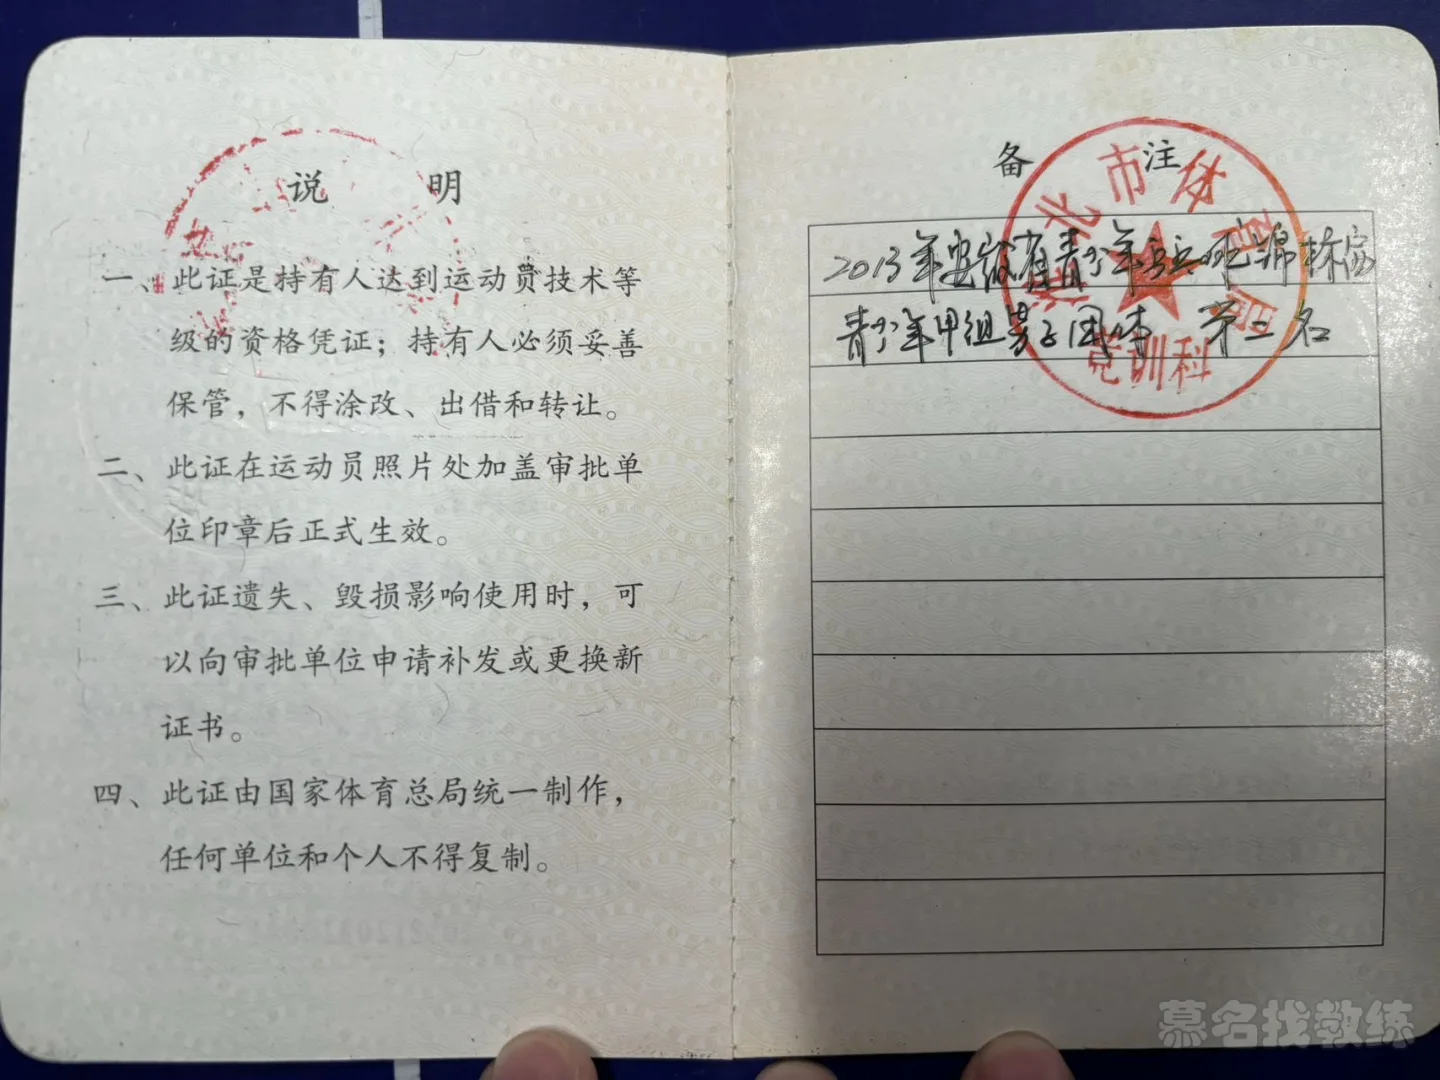 说 明
一、此证是持有人达到运动员技术等
级的资格凭证；持有人必须妥善
保管，不得涂改、出借和转让。
二、此证在运动员照片处加盖审批单
位印章后正式生效。
三、此证遗失、毁损影响使用时，可
以向审批单位申请补发或更换新
证书。
四、此证由国家体育总局统一制作，
任何单位和个人不得复制。
备 注
2013年安徽省青少年乒乓球锦标赛
青少年甲组男子团体 第三名
北市体育局
竞训科
慕名找教练